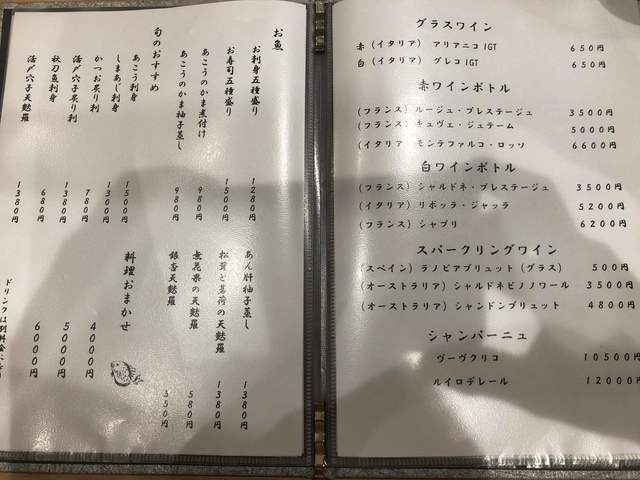 お魚
お刺身五種盛り 1280円
お寿司五種盛り 1500円
あこうのかま煮付け 980円
あこうのかま柚子蒸し 980円
旬のおすすめ
あこう刺身 1500円
しまあじ刺身 1300円
かつお炙り刺 780円
活〆穴子炙り刺 1380円
秋刀魚刺身 680円
活〆穴子天麩羅 1380円
あん肝柚子蒸し 1380円
松茸と茗荷の天麩羅 1380円
無花果の天麩羅 580円
銀杏天麩羅 550円
料理おまかせ
4000円
5000円
6000円
ドリンクは別料金に
グラスワイン
赤 (イタリア) アリアニコIGT 650円
白 (イタリア) グレコIGT 650円
赤ワインボトル
(フランス) ルージュ・プレステージュ 3500円
(フランス) キュヴェ・ジュテーム 5000円
(イタリア) モンテファルコ・ロッソ 6600円
白ワインボトル
(フランス) シャルドネ・プレステージュ 3500円
(イタリア) リボッラ・ジャッラ 5200円
(フランス) シャブリ 6200円
スパークリングワイン
(スペイン) ラノビアブリュット (グラス) 500円
(オーストラリア) シャルドネピノノワール 3500円
(オーストラリア) シャンドンブリュット 4800円
シャンパーニュ
ヴーヴクリコ 10500円
ルイロデレール 12000円